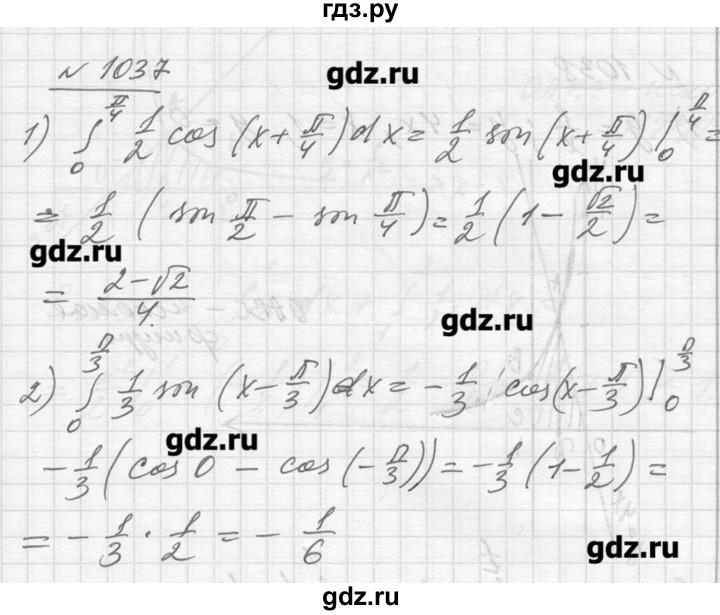 гдз.ру
№ 1037
gdz.ru
1) ∫₀^{π/4} 1/2 cos (x + π/4) dx = 1/2 sin (x + π/4) |₀^{π/4} =
gdz.ru
= 1/2 (sin π/2 − sin π/4) = 1/2 (1 − √2/2) =
gdz.ru
= (2 − √2)/4.
gdz.ru
2) ∫₀^{π/3} 1/3 sin (x − π/3) dx = − 1/3 cos (x − π/3) |₀^{π/3}
gdz.ru
− 1/3 (cos 0 − cos (− π/3)) = − 1/3 (1 − 1/2) =
= − 1/3 · 1/2 = − 1/6
gdz.ru
gdz.ru